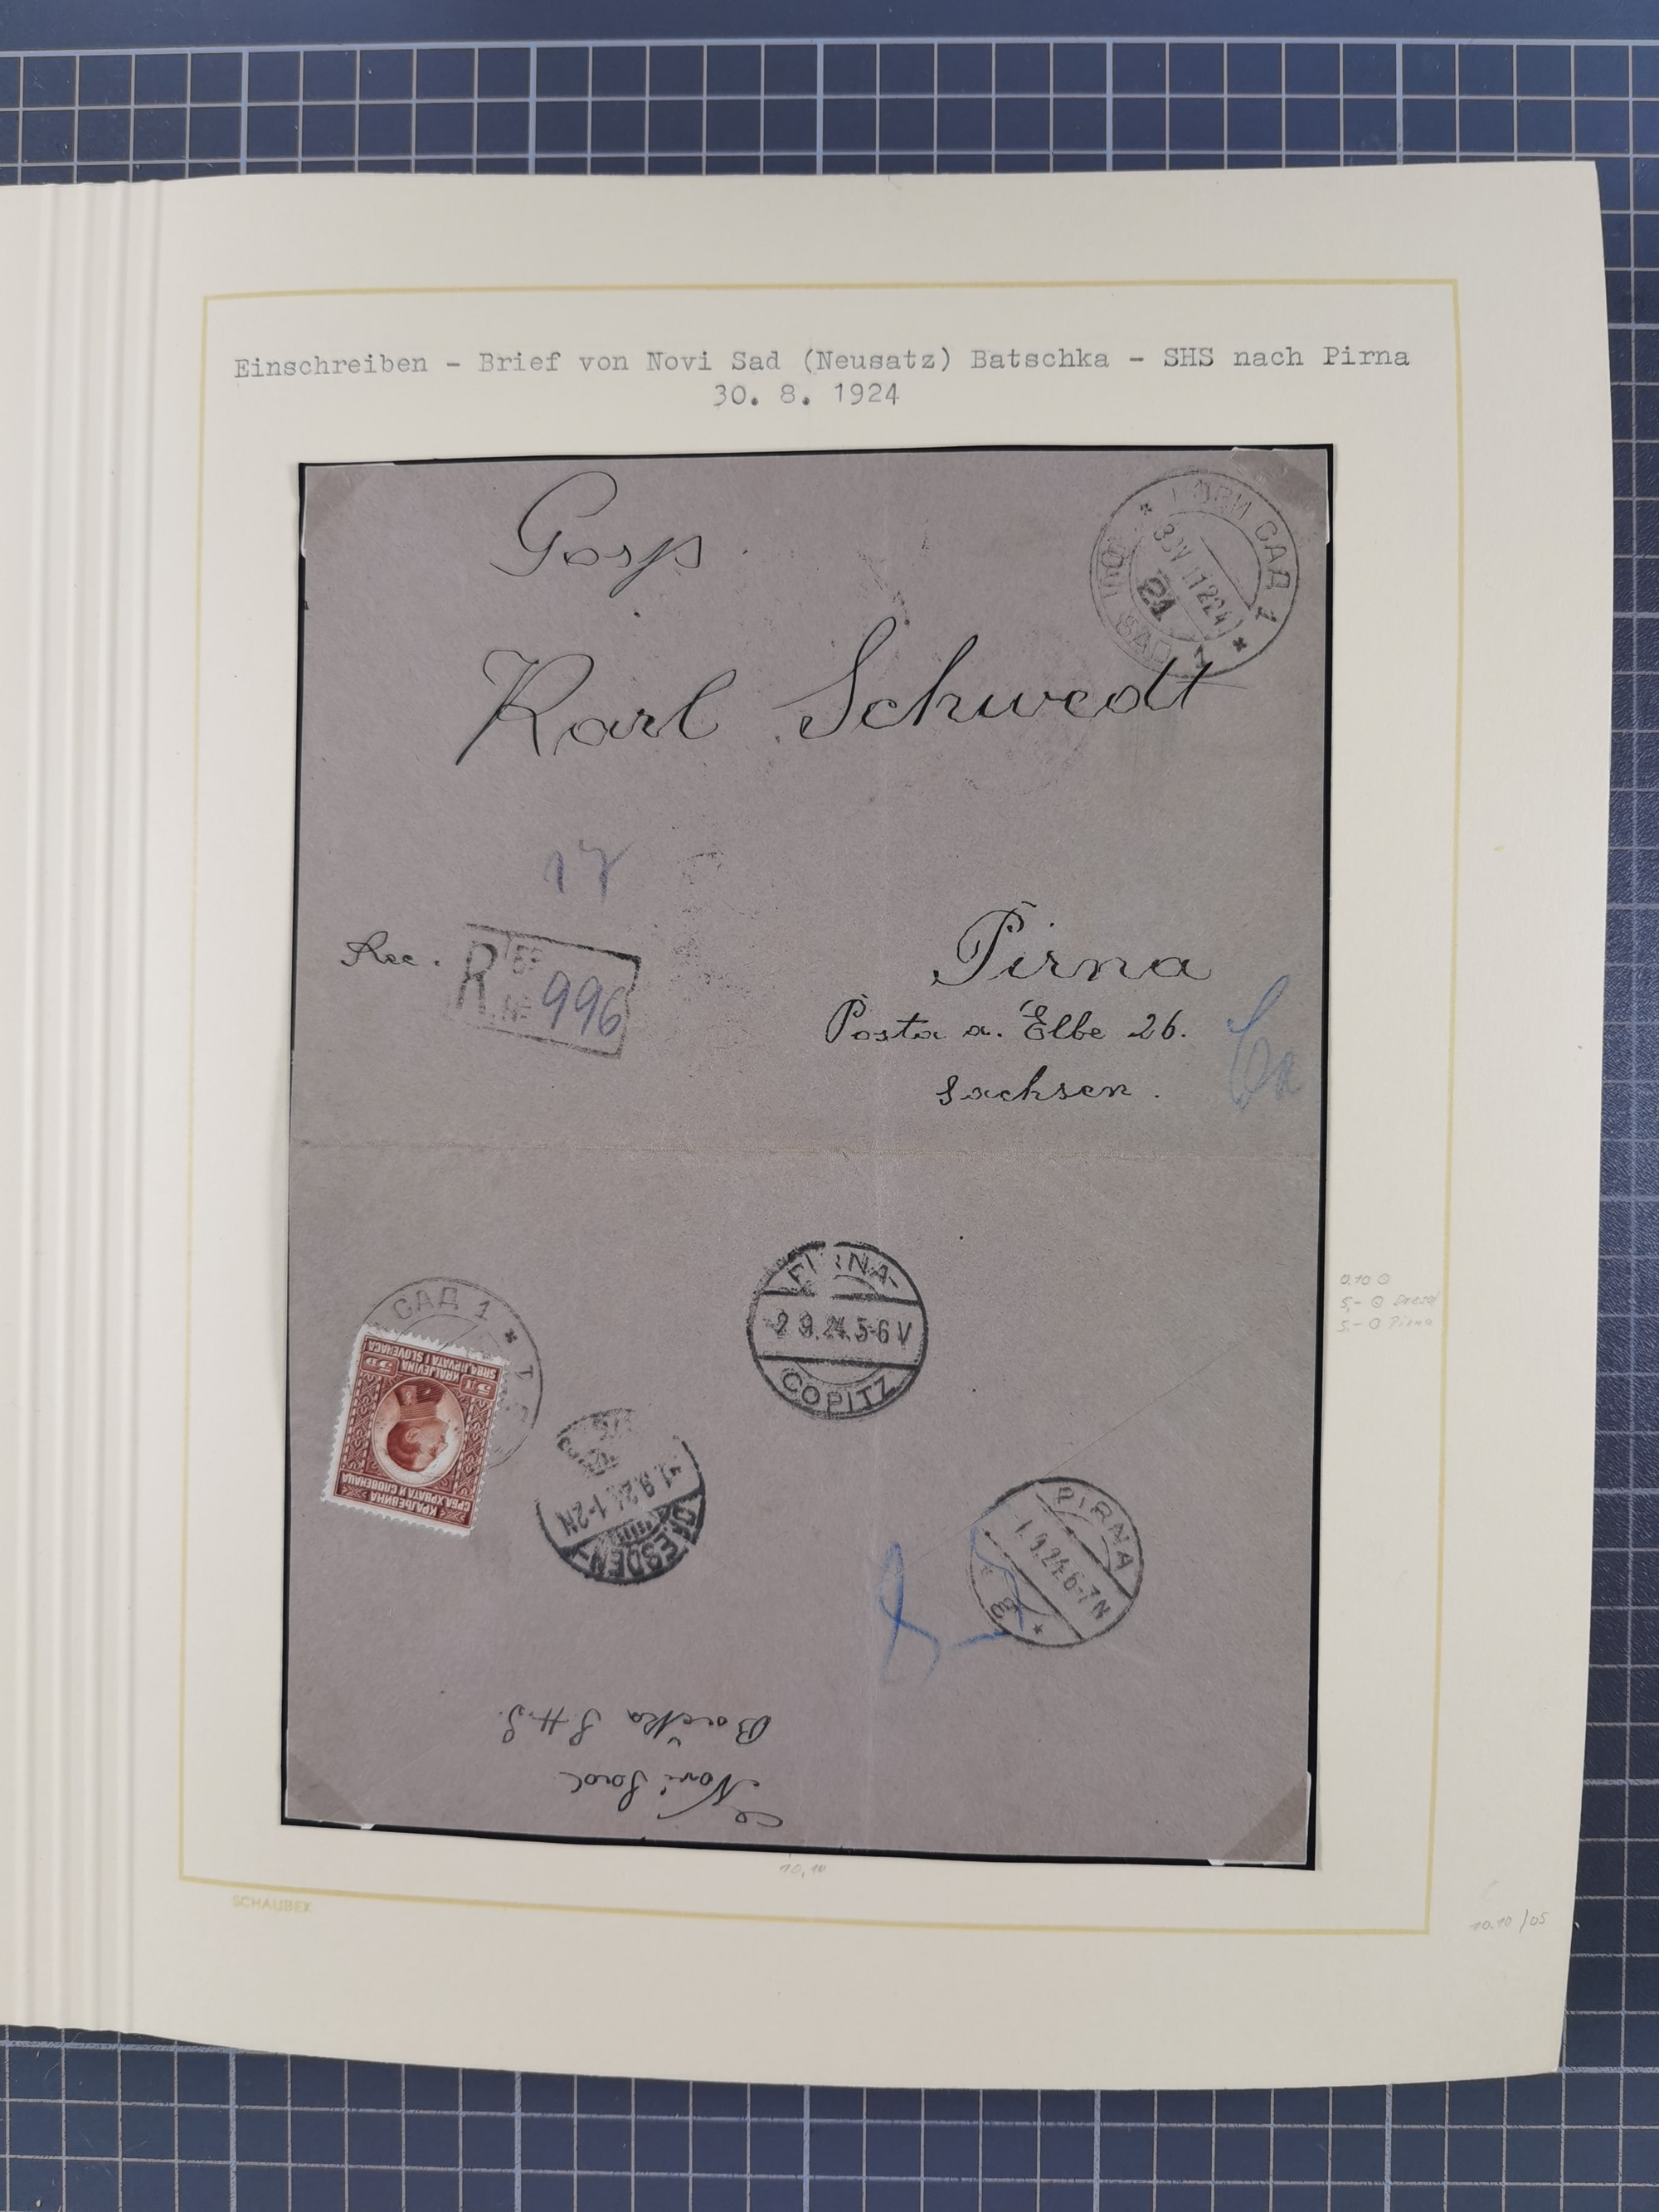 Einschreiben - Brief von Novi Sad (Neusatz) Batschka - SHS nach Pirna
30. 8. 1924
Gosp
НОВИ САД 1
SAD 1
Karl Schwedt
17
Rec.
R
№ 996
Pirna
Posta a. Elbe 26.
Sachsen.
PIRNA-
2 9.24.5-6 V
COPITZ
САД 1
КРАЉЕВИНА
СРБА ХРВАТА И СЛОВЕНАЦА
5Д 5D
KRALJEVINA
SRBA, HRVATA I SLOVENACA
DRESDEN-
-1.9.24.1-2N
PIRNA
1.9.24.6-7N
* 3 *
Novi Sad
Bačka S.H.S.
0.10
5,- Dresd
5,- Pirna
10,10
SCHAUBEK
10.10/05